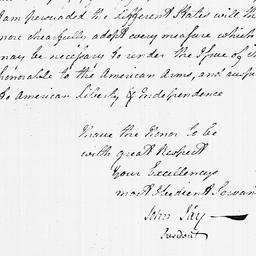 I am persuaded the different States will th
more chearfully adopt every measure which
may be necessary to render the Issue of
honorable to the American Arms, and ausp
to American liberty & Independence
I have the Honor to be
with great Respect
Your Excellencys
most Obedient Servan
John Jay
President